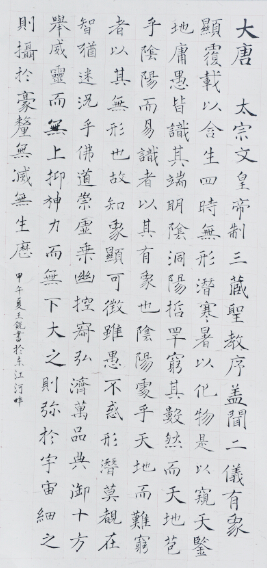 大唐 太宗文皇帝制三藏聖教序盖聞二儀有象
顯覆載以含生四時無形潛寒暑以化物是以窺天鑒
地庸愚皆識其端明陰洞陽哲罕窮其數然而天地苞
乎陰陽而易識者以其有象也陰陽處乎天地而難窮
者以其無形也故知象顯可徵雖愚不惑形潛莫覩在
智猶迷況乎佛道崇虛乗幽控寂弘濟萬品典御十方
舉威靈而無上抑神力而無下大之則弥於宇宙細之
則攝於豪釐無滅無生歷
甲午夏王 書於東江河畔